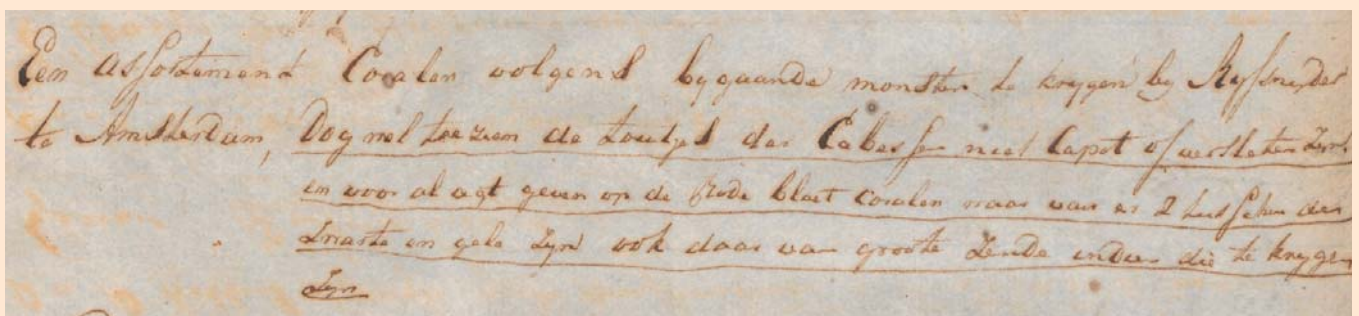 Een assortiment Coralen volgens bygaande monster te krygen by Ryssnyder
te Amsterdam, Dog wel toe zien de toutjes der Cabessen niet Capot of versleten Zyn
en voor al agt geven op de Rode bloet coralen waar van er 2 tusschen de
Zwarte en gele Zyn ook daar van groote Zende indien die te krygen
Zyn